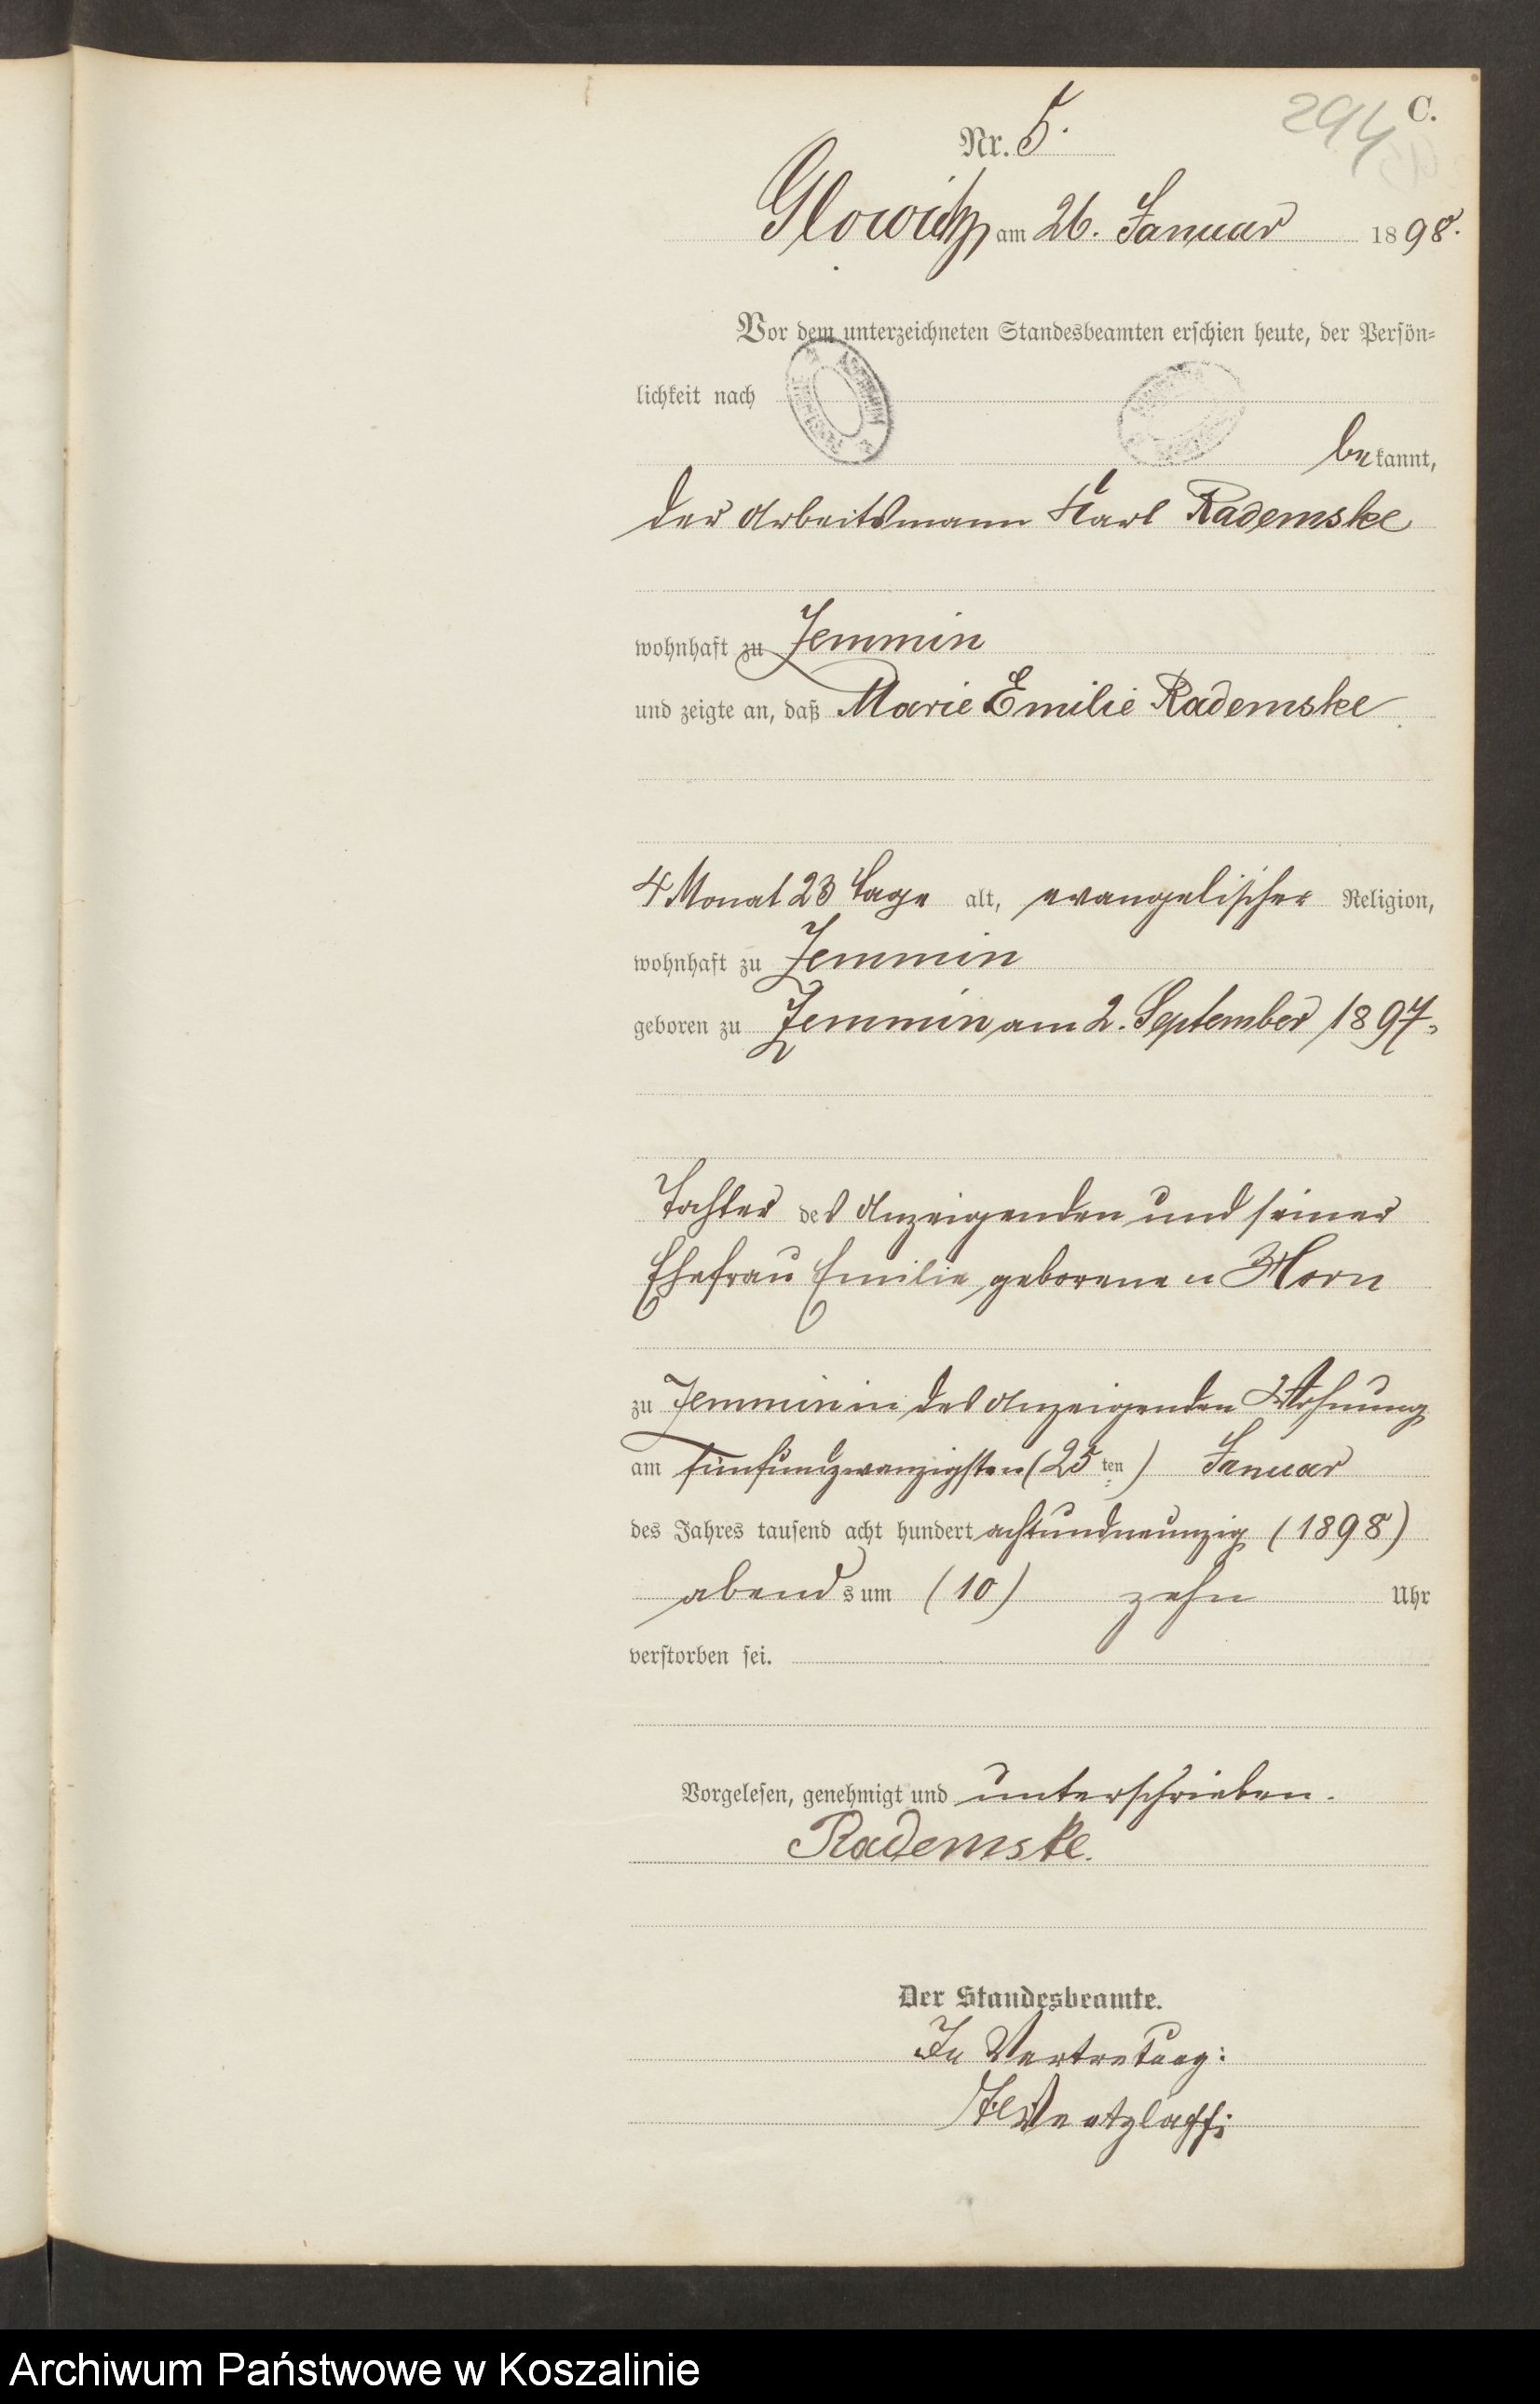 294 C.
Nr. 5.
Glowitz am 26. Januar 1898.
Vor dem unterzeichneten Standesbeamten erschien heute, der Persön=
lichkeit nach
bekannt,
der Arbeitsmann Karl Rademske
wohnhaft zu Zemmin
und zeigte an, daß Marie Emilie Rademske
4 Monat 23 Tage alt, evangelischer Religion,
wohnhaft zu Zemmin
geboren zu Zemmin am 2. September 1897,
Tochter des Anzeigenden und seiner
Ehefrau Emilie geborenen Horn
zu Zemmin in des Anzeigenden Wohnung
am fünfundzwanzigsten (25ten) Januar
des Jahres tausend acht hundert achtundneunzig (1898)
abends um (10) zehn Uhr
verstorben sei.
Vorgelesen, genehmigt und unterschrieben.
Rademske.
Der Standesbeamte.
In Vertretung:
Archiwum Państwowe w Koszalinie